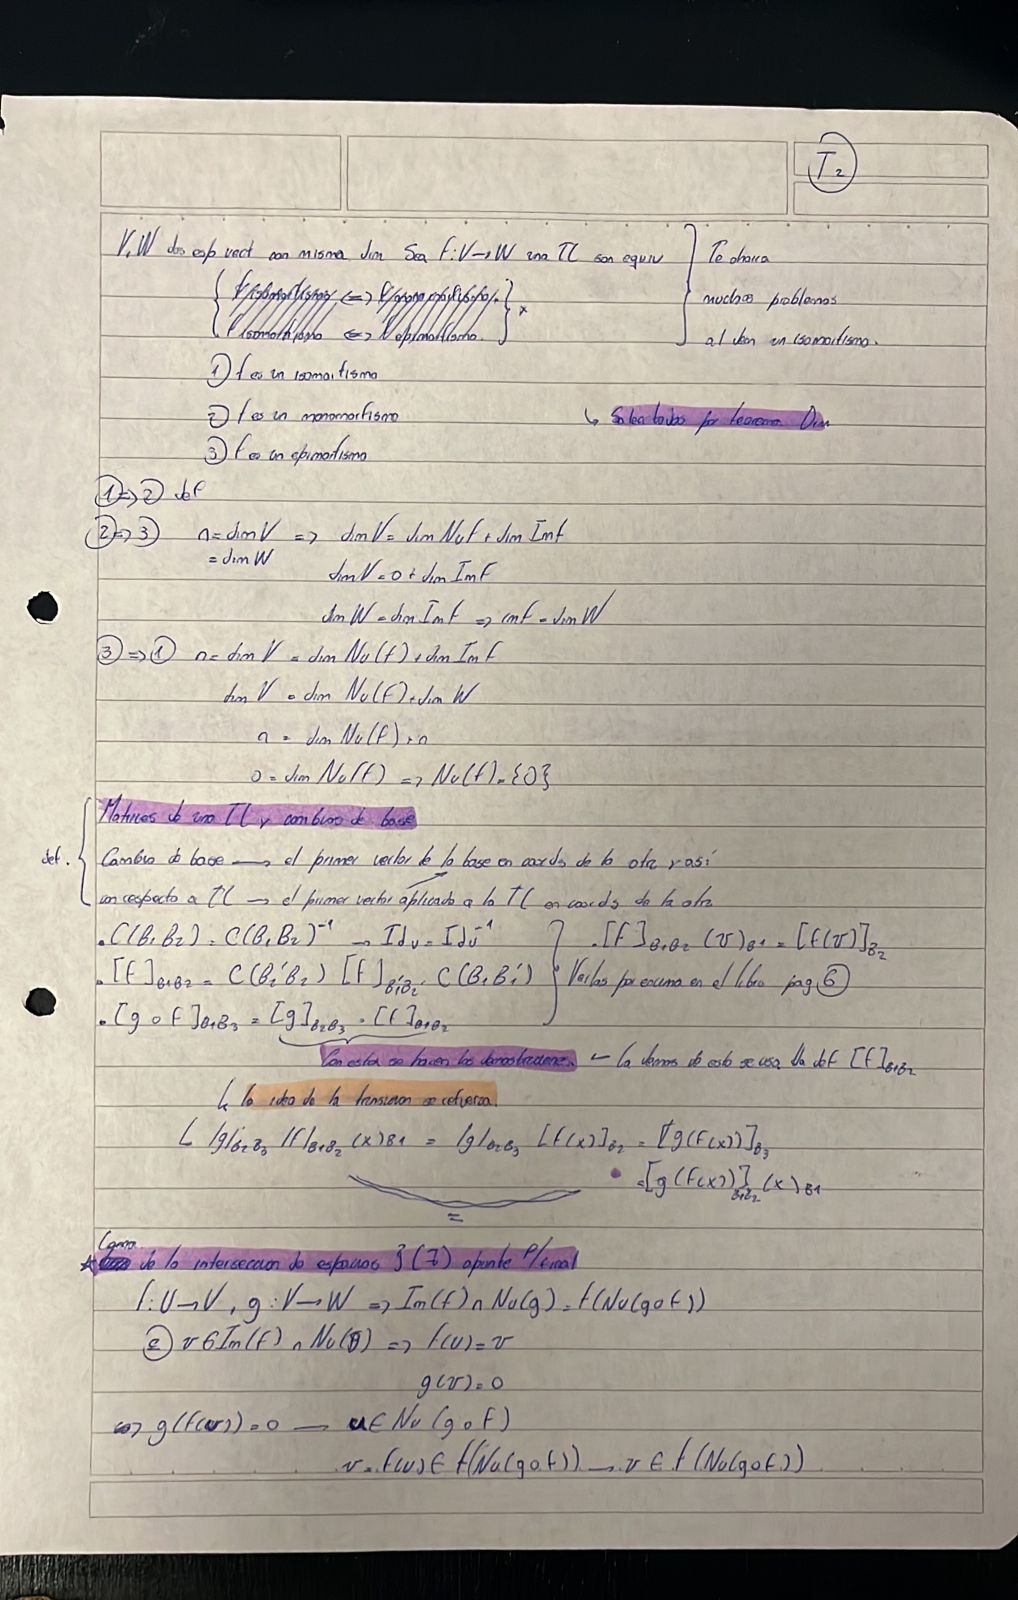 T2
V, W dos esp vect con misma dim Sea f: V → W una TL son equiv
Te ahorra
muchos problemas
al ver un isomorfismo.
f isomorfismo ⟺ f epimorfismo.
① f es un isomorfismo
② f es un monomorfismo
↳ Salen todos por teorema Dim
③ f es un epimorfismo
①⇒② def
②⇒③ n = dim V ⇒ dim V = dim Nu f + dim Im f
= dim W
dim V = 0 + dim Im F
dim W = dim Im f ⇒ imf = dim W
③⇒① n = dim V = dim Nu(f) + dim Im f
dim V = dim Nu(F) + dim W
n = dim Nu(f) + n
0 = dim Nu(f) ⇒ Nu(f) = {0}
Matrices de una TL y cambios de base
def. Cambio de base → el primer vector de la base en coords de la otra y así
con respecto a TL → el primer vector aplicado a la TL en coords de la otra
. C(B1 B2) = C(B1 B2)^-1 → Idv = Idv^-1
. [f]B1B2 (v)B1 = [f(v)]B2
. [f]B1B2 = C(B2' B2) [f]B1'B2' . C(B1 B1')
Verlas por encima en el libro pag ⑥
. [g o f]B1B3 = [g]B2B3 . [f]B1B2
Con estas se hacen las demostraciones. ← La demos de esto se usa la def [f]B1B2
↳ la idea de la transicion se refuerza.
↳ |g|B2B3 |f|B1B2 (x)B1 = |g|B2B3 [f(x)]B2 = [g(f(x))]B3
= [g(f(x))]B1B2 (x)B1
=
de la interseccion de espacios } (7) apunte P/final
f: U → V, g: V → W ⇒ Im(f) ∩ Nu(g) = f(Nu(g o f))
⊆ v ∈ Im(f) ∩ Nu(g) ⇒ f(u) = v
g(v) = 0
⇔ g(f(u)) = 0 → u ∈ Nu(g o f)
v = f(u) ∈ f(Nu(g o f)) → v ∈ f(Nu(g o f))